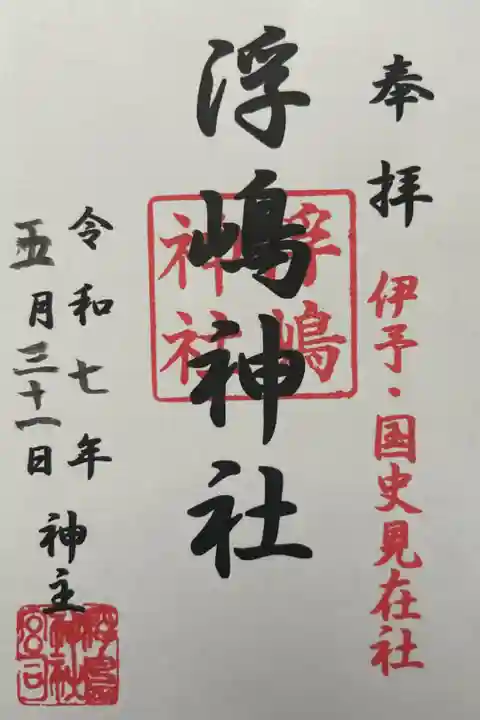 奉拝
伊予・国史見在社
浮嶋神社
浮嶋神社
令和七年
五月三十一日
神主
浮嶋神社宮司